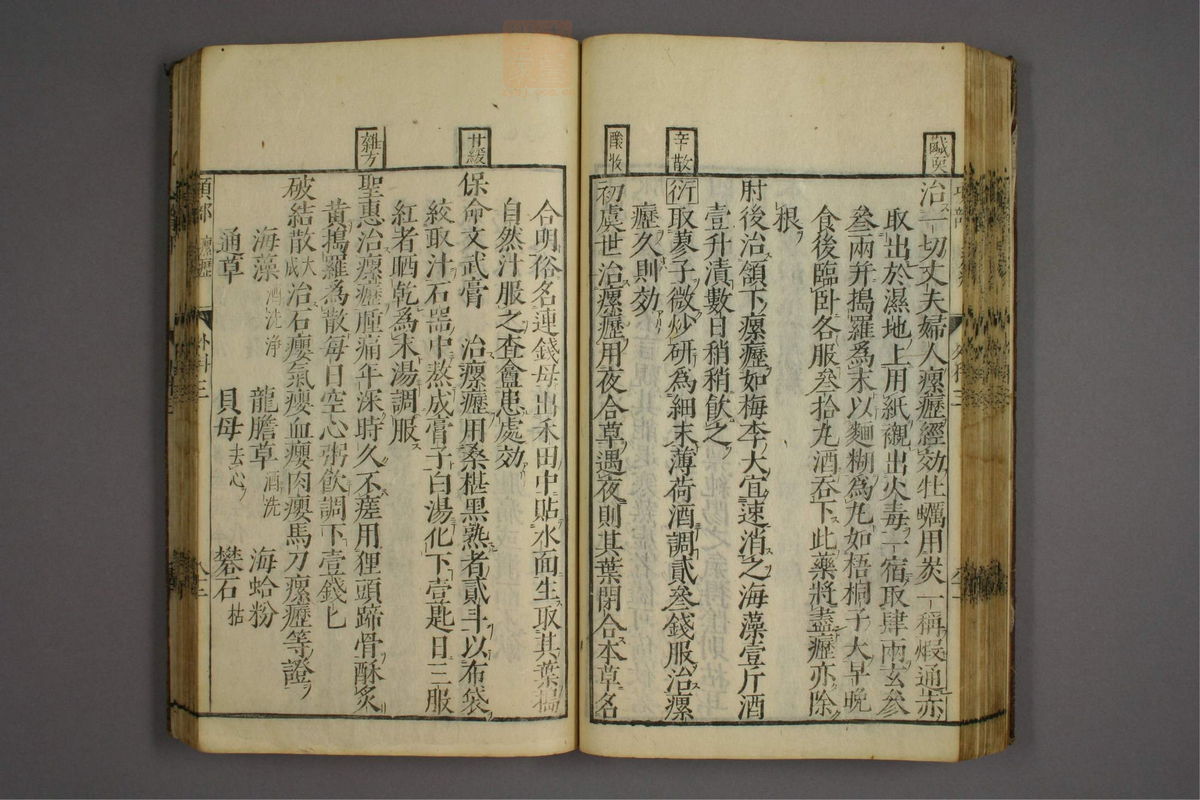 鹹耎
治一切丈夫婦人瘰癧經効牡蠣用炭一稱煆通赤
取出於濕地上用紙襯出火毒一宿取肆兩玄參
叄兩并搗羅爲末以麵糊為丸如梧桐子大早晚
食後臨臥各服叄拾丸酒吞下此藥將盡癧亦除
根
肘後治頷下瘰癧如梅李大宜速消之海藻壹斤酒
壹升漬數日稍稍飲之
辛散
衍取蔓子微炒研爲細末薄荷酒調貳叄錢服治瘰
癧久則効
酸收
初虞世治瘰癧用夜合草遇夜則其葉閉合本草名
合明俗名連錢母出禾田中貼水面生取其葉搗
自然汁服之查盦患處効
甘緩
保命文武膏 治瘰癧用桑椹黑熟者貳斗以布袋
絞取汁石器中熬成膏子白湯化下壹匙日三服
紅者晒乾為末湯調服
雜方
聖惠治瘰癧腫痛年深時久不瘥用狸頭蹄骨酥炙
黃搗羅為散每日空心粥飲調下壹錢匕
破結散大成治石癭氣癭血癭肉癭馬刀瘰癧等證
海藻酒洗淨 龍膽草酒洗 海蛤粉
通草 貝母去心 礬石枯
項部 瘰癧 外科三